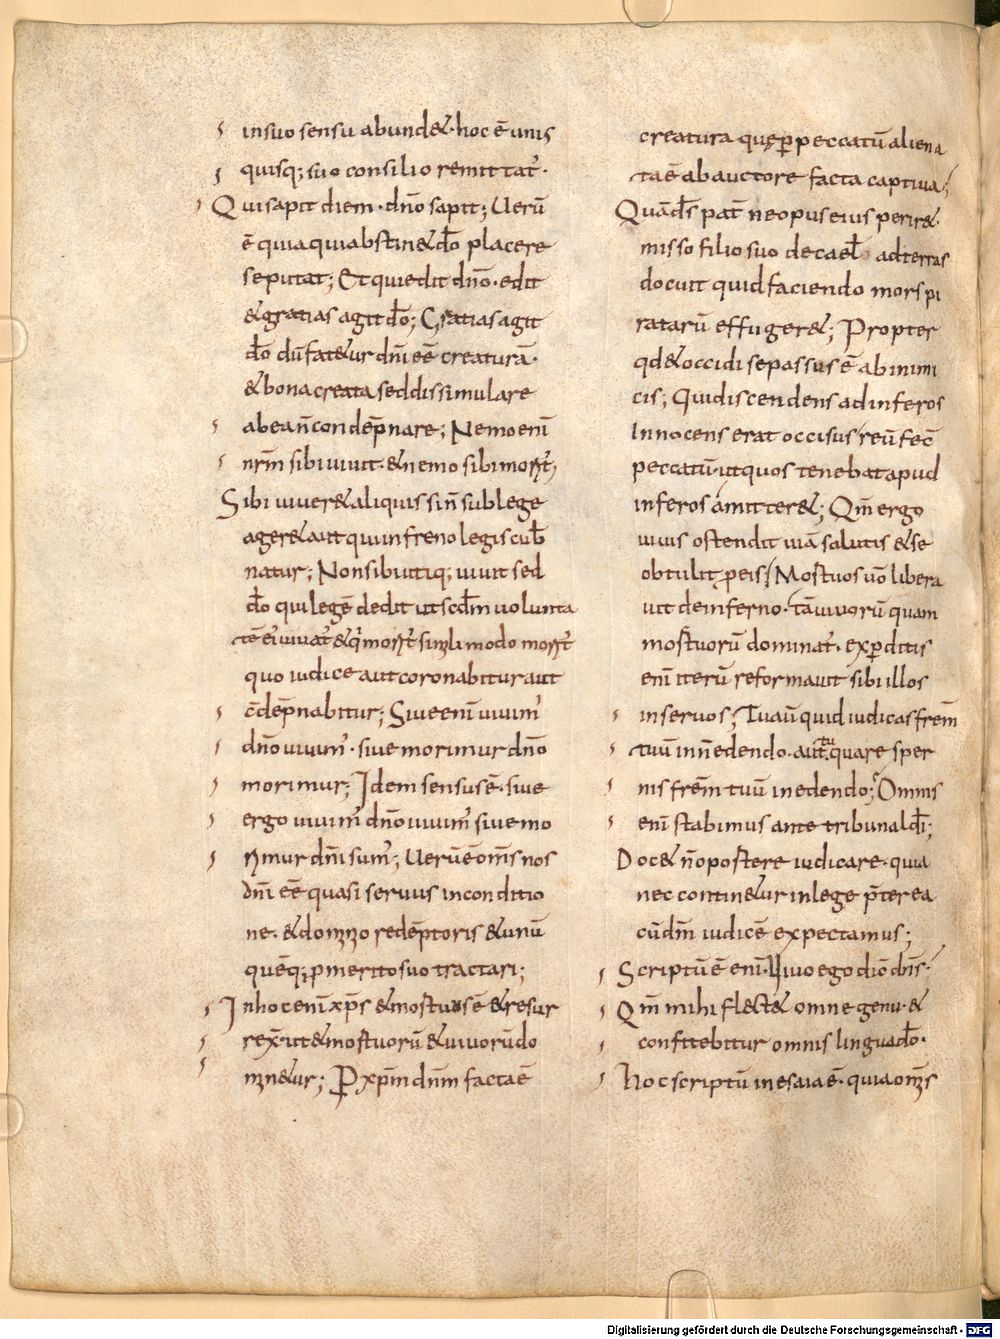 in suo sensu abundet· hoc ē unus
quisq; suo consilio remittat᷑·
Qui sapit diem· dn̄o sapit; Uerū
ē quia qui abstinet dō placere
se putat; Et qui edit dn̄o· edit
& gratias agit dō; Gratias agit
dō dū fatetur dn̄i eē creaturā·
& bona creata sed dissimulare
abea n̄ condēpnare; Nemo enī
nr̄m sibi uiuit· & nemo sibi morit᷑;
Sibi uiueret aliquis si n̄ sub lege
ageret aut qui in freno legis cub
natur; Non sibi utiq; uiuit sed
dō qui legē dedit ut scdm̄ uolunta
tē ei᷒ uiuat᷑ & q̇ morit᷑ simili modo morit᷑
quo iudice aut coronabitur aut
c̄dēpnabitur; Siue enī uiuim᷒
dn̄o uiuim᷒· siue morimur dn̄o
morimur; Idem sensus ē· siue
ergo uiuim᷒ dn̄o uiuim᷒ siue mo
rimur dn̄i sum᷒; Uerū ē om̄s nos
dn̄i eē quasi seruus in conditio
ne· & dominio redēptoris & unū
quēq; p merito suo tractari;
In hoc enī xp̄s & mortuus ē & resur
rex̄· ut & mortuorū & uiuorū do
minetur; P xp̄m dn̄m facta ē
creatura quę ꝑ peccatū aliena
ta ē ab auctore facta captiua;
Quā dš pat᷑ ne opus eius periret
misso filio suo de cael ad terras
docuit quid faciendo mors pi
ratarū effugeret; Propter
qd̄ & occidi se passus ē ab inimi
cis; Qui discendens ad inferos
Innocens erat occisus reū fec̄
peccatū· ut quos tenebat apud
inferos amitteret; Qm̄ ergo
uiuis ostendit uiā salutis & se
obtulit p eis; Mortuos uō libera
uit de inferno· tā uiuorū quam
mortuorū dominat᷑· ex ꝑditis
enī iterū reformauit sibi illos
in seruos; Tu aū quid iudicas fr̄em
tuū in n̄ edendo· aut tu quare sper
nis fr̄em tuū in edendo; Omnis
enī stabimus ante tribunal dī;
Docet n̄ oportere iudicare· quia
nec continetur in lege p̄terea
cū dm̄ iudicē expectamus;
Scriptū ē enī· Uiuo ego dic̄ dn̄s·
Qm̄ mihi flectet omne genu· &
confitebitur omnis lingua dō·
Hoc scriptū in esaia ē· quia om̄s
Digitalisierung gefördert durch die Deutsche Forschungsgemeinschaft - DFG